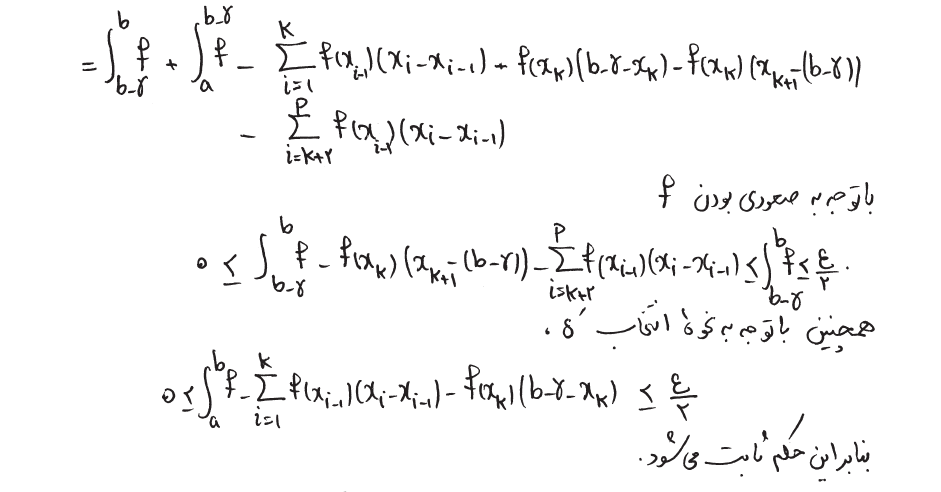 = ∫_{b-γ}^{b} f + ∫_{a}^{b-γ} f - Σ_{i=1}^{k} f(x_{i-1})(x_i - x_{i-1}) - f(x_k)(b-γ-x_k) - f(x_k)(x_{k+1}-(b-γ))
- Σ_{i=k+۲}^{p} f(x_{i-1})(x_i - x_{i-1})
با توجه به صعودی بودن f
۰ ≤ ∫_{b-γ}^{b} f - f(x_k)(x_{k+1}-(b-γ)) - Σ_{i=k+۲}^{p} f(x_{i-1})(x_i - x_{i-1}) ≤ ∫_{b-γ}^{b} f ≤ ε/۲.
همچنین با توجه به نحوهٔ انتخاب δ′،
۰ ≤ ∫_{a}^{b} f - Σ_{i=1}^{k} f(x_{i-1})(x_i - x_{i-1}) - f(x_k)(b-γ-x_k) ≤ ε/۲
بنابراین حکم ثابت می‌شود.